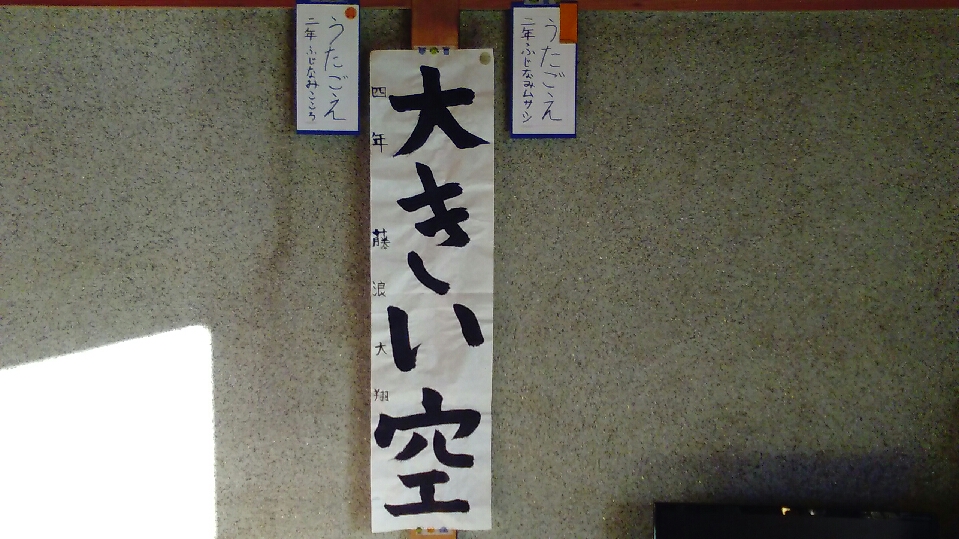 うたごえ
二年ふじなみムサシ
大きい空
四年 藤浪大翔
うたごえ
二年ふじなみこころ